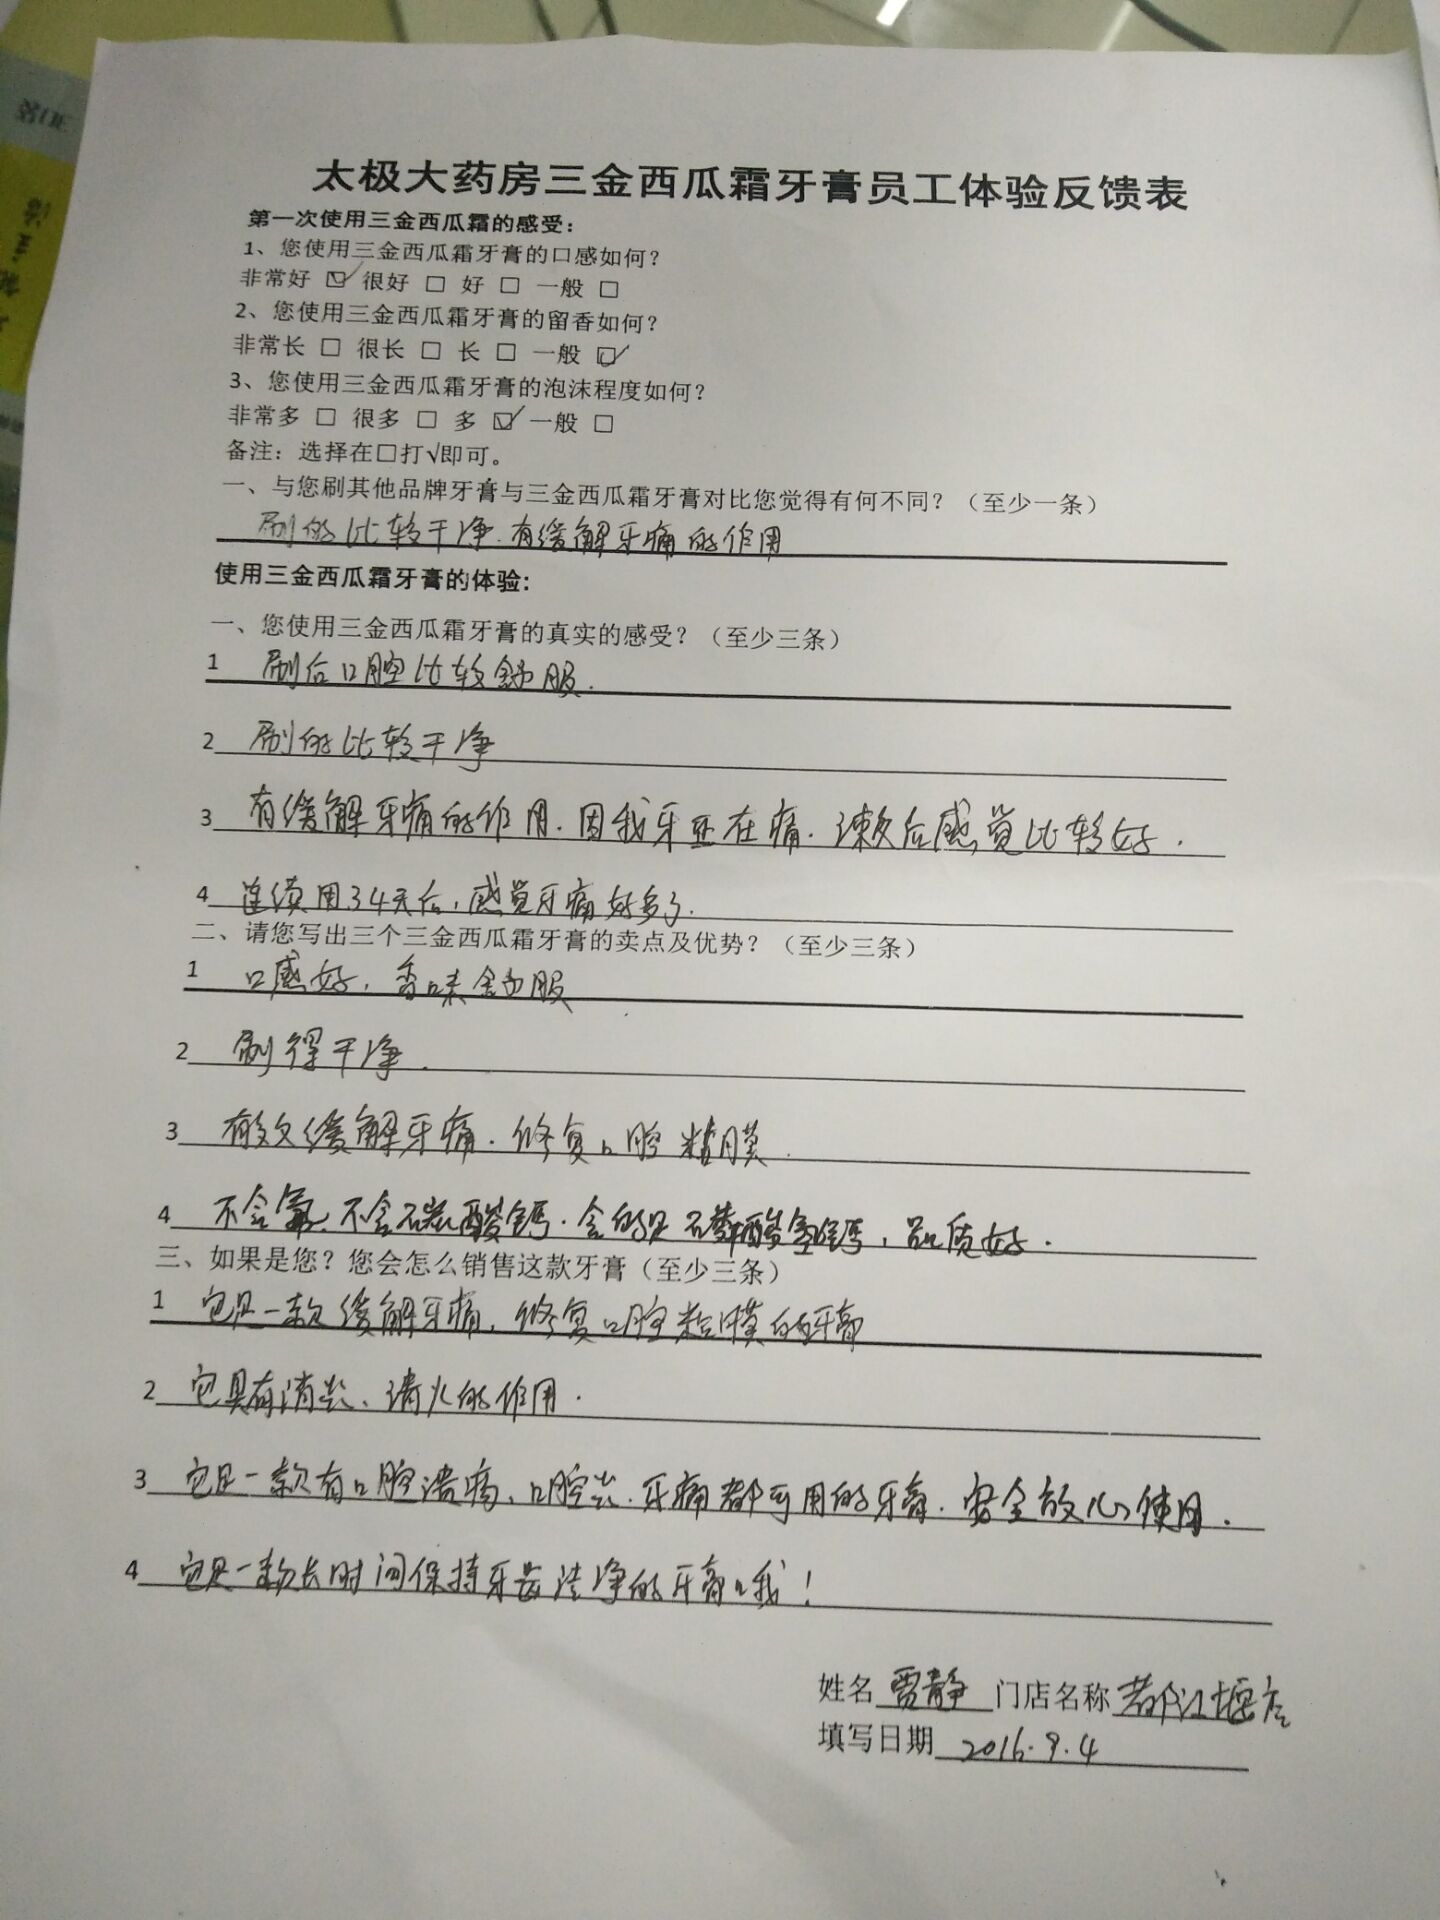 太极大药房三金西瓜霜牙膏员工体验反馈表
第一次使用三金西瓜霜的感受：
1、您使用三金西瓜霜牙膏的口感如何？
非常好 ☑ 很好 □ 好 □ 一般 □
2、您使用三金西瓜霜牙膏的留香如何？
非常长 □ 很长 □ 长 □ 一般 ☑
3、您使用三金西瓜霜牙膏的泡沫程度如何？
非常多 □ 很多 □ 多 ☑ 一般 □
备注：选择在□打√即可。
一、与您刷其他品牌牙膏与三金西瓜霜牙膏对比您觉得有何不同？（至少一条）
刷的比较干净.有缓解牙痛的作用
使用三金西瓜霜牙膏的体验:
一、您使用三金西瓜霜牙膏的真实的感受？（至少三条）
1 刷后口腔比较舒服.
2 刷的比较干净
3 有缓解牙痛的作用.因我牙正在痛.漱后感觉比较好.
4 连续用34天后,感觉牙痛好多了.
二、请您写出三个三金西瓜霜牙膏的卖点及优势？（至少三条）
1 口感好,香味舒服
2 刷得干净.
3 有效缓解牙痛.修复口腔粘膜.
4 不含氟、不含碳酸钙.含的是磷酸氢钙,品质好.
三、如果是您？您会怎么销售这款牙膏（至少三条）
1 它是一款缓解牙痛,修复口腔粘膜的牙膏
2 它具有消炎、清火的作用.
3 它是一款有口腔溃疡、口腔炎.牙痛都可用的牙膏.安全放心使用.
4 它是一款长时间保持牙齿洁净的牙膏哦!
姓名 贾静 门店名称 都江堰店
填写日期 2016.9.4